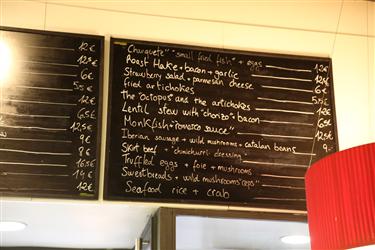 12€
12€
6€
5.5€
12€
6.5€
12.5€
9€
9€
16.5€
14€
12€
"Chanquete" "small fried fish" + eggs 13€
Roast Hake + bacon + garlic 12€
Strawberry salad + parmesan cheese 6€
fried artichokes 5.5€
The "octopus" and the artichokes 12€
Lentil stew with "chorizo" + bacon 6.5€
Monkfish "romesco sauce" 12.5€
Iberian sausage + wild mushrooms + catalan beans 9€
Skirt beef + "chimichurri dressing"
Truffled eggs + foie + mushrooms
Sweetbreads + wild mushrooms "ceps"
Seafood rice + crab